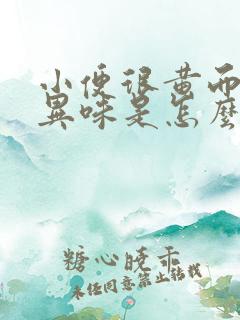 小便很黄而
異味是怎麼
糖心晓乖
未经同意禁止转载